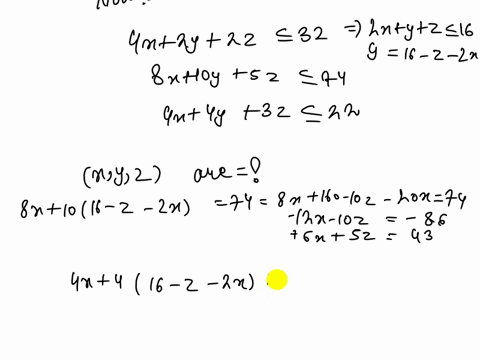 4x+2y+2z ≤32 => 2x+y+z ≤16
y = 16-z-2x
8x+10y +5z ≤74
4x+4y +3z ≤22
(x,y,z) are=?
8x+10(16-z -2x) =74 = 8x+160-10z -20x=74
-12x-10z = -86
+6x+5z = 43
4x+4 ( 16-z -2x)